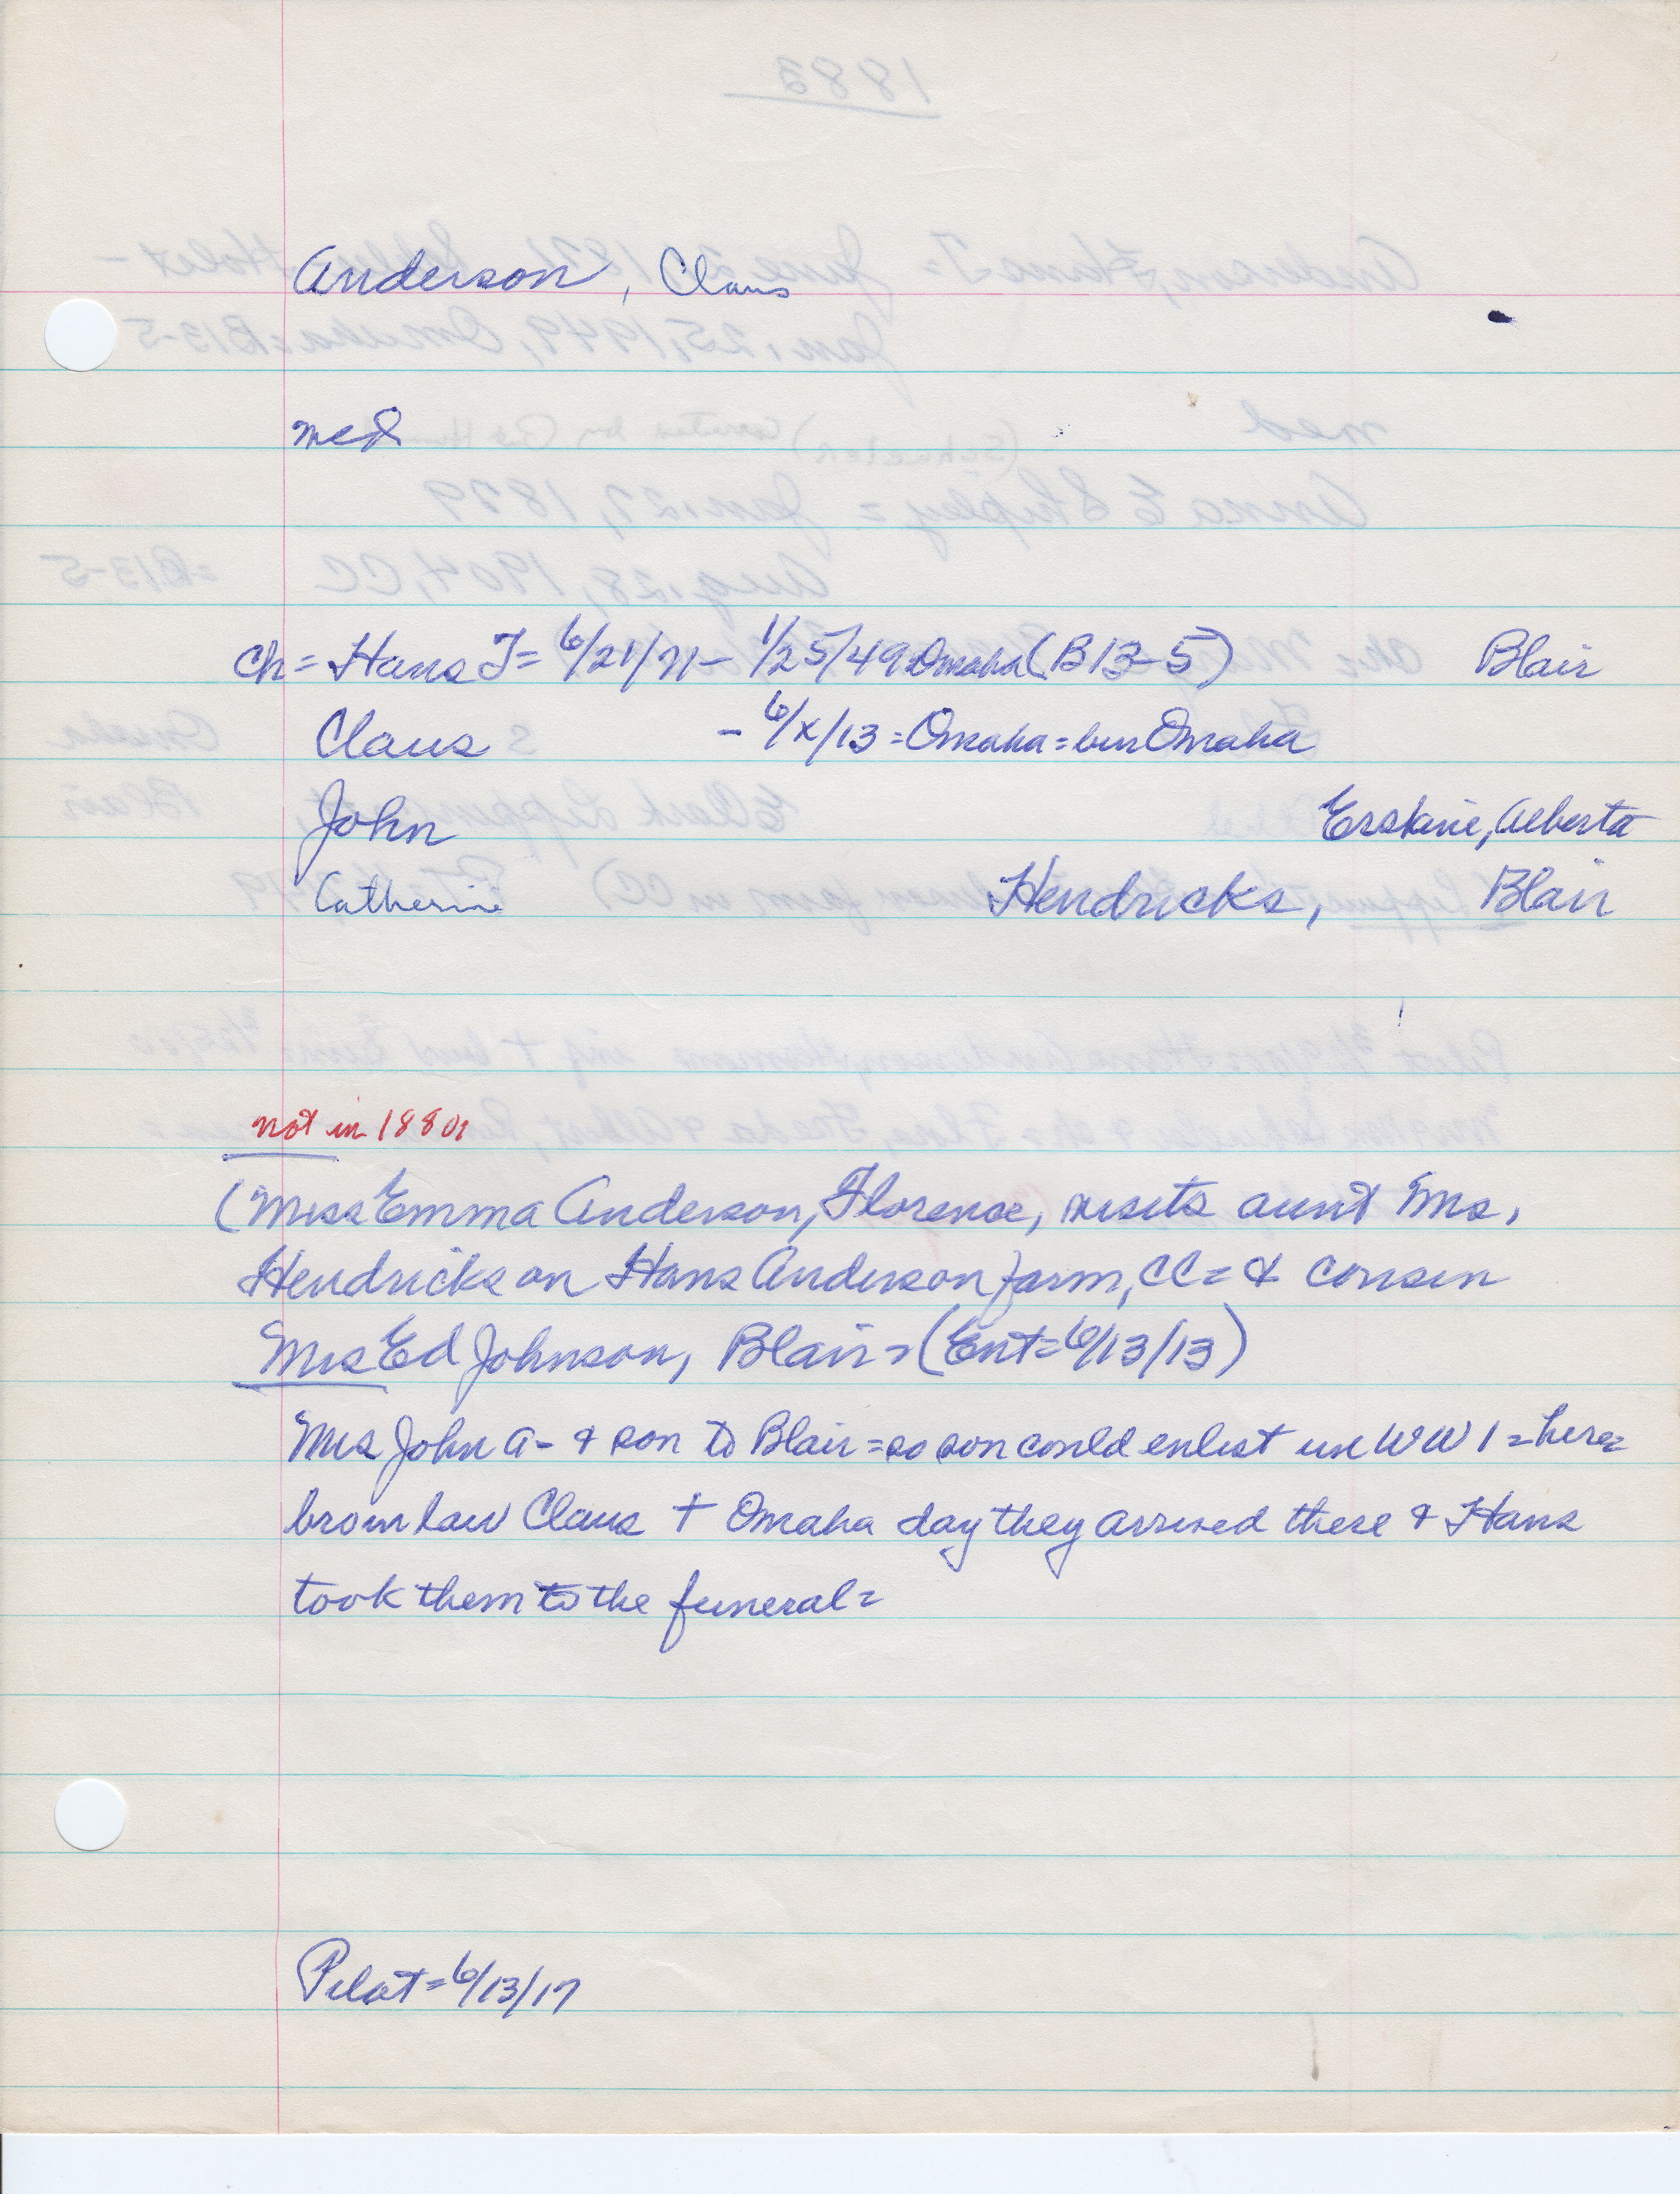 Anderson, Claus
med
Ch = Hans J = 6/21/71 - 1/25/49 Omaha (B13-5) Blair
Claus - 6/x/13 = Omaha = bur Omaha
John Erskine, Alberta
Catherine Hendricks, Blair
not in 1880s
(Miss Emma Anderson, Florence, visits aunt Mrs.
Hendricks on Hans Anderson farm, CC = & cousin
Mrs Ed Johnson, Blair = (Ent = 6/13/13)
Mrs John A - & son to Blair = so son could enlist in WW1 = here =
bro in law Claus + Omaha day they arrived there & Hans
took them to the funeral =
Pilot = 6/13/17